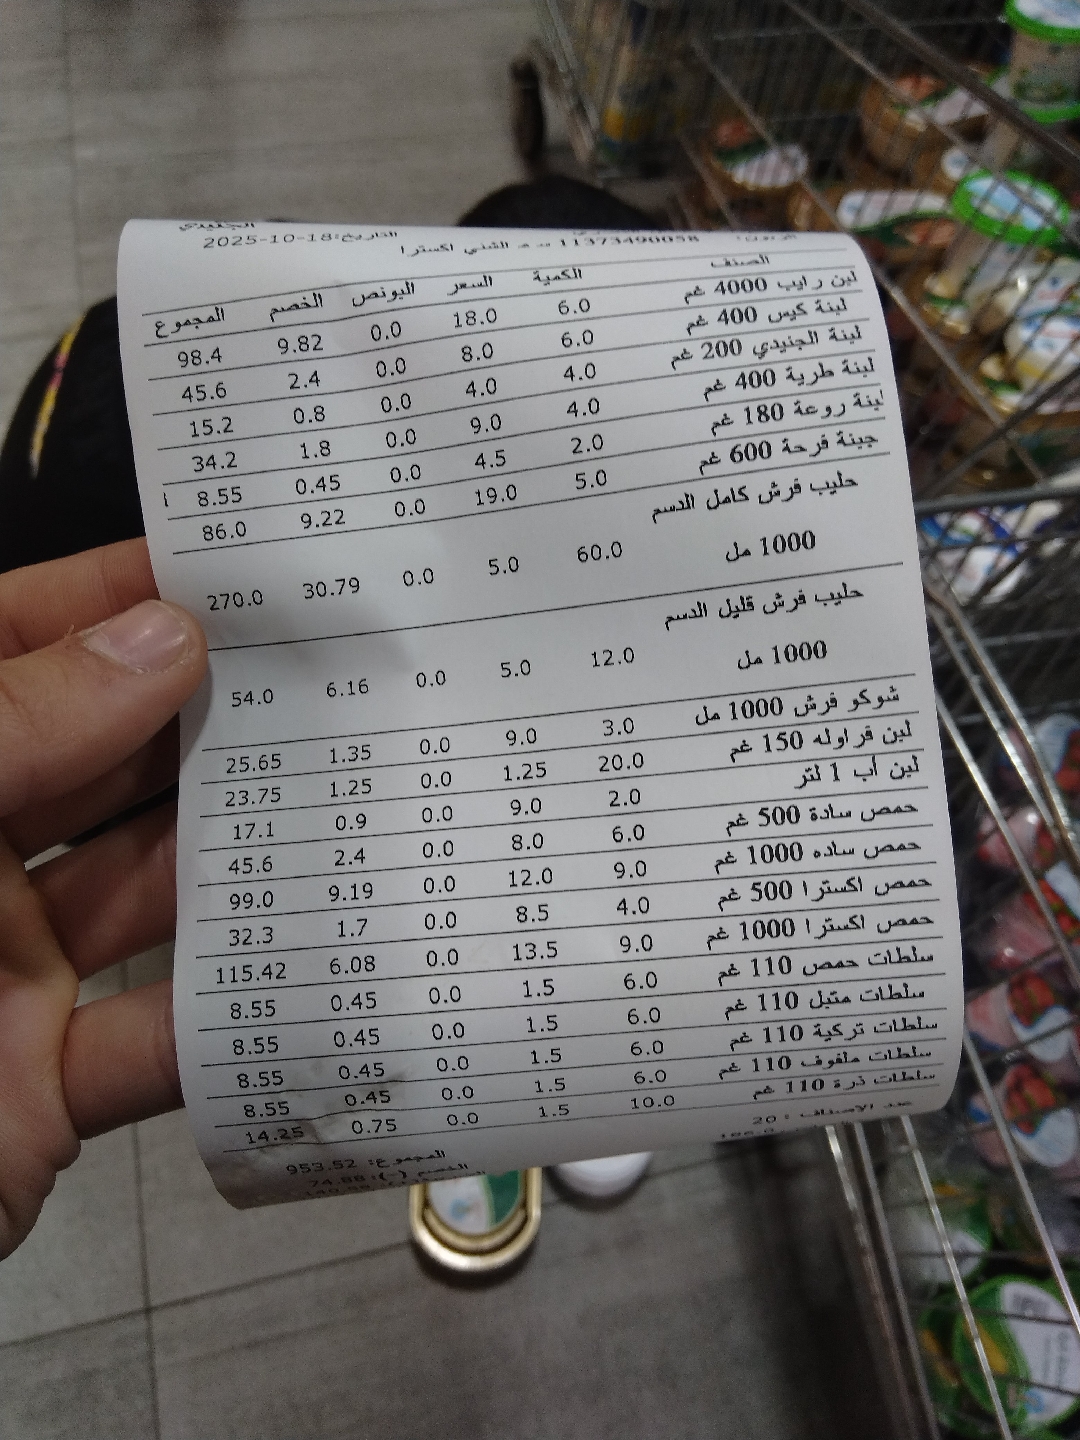 الجنيدي
التاريخ:18-10-2025
11373490058 الشني اكسترا
الصنف الكمية السعر البونص الخصم المجموع
لبن رايب 4000 غم 6.0 18.0 0.0 9.82 98.4
لبنة كيس 400 غم 6.0 8.0 0.0 2.4 45.6
لبنة الجنيدي 200 غم 4.0 4.0 0.0 0.8 15.2
لبنة طرية 400 غم 4.0 9.0 0.0 1.8 34.2
لبنة روعة 180 غم 2.0 4.5 0.0 0.45 8.55
جبنة فرحة 600 غم 5.0 19.0 0.0 9.22 86.0
حليب فرش كامل الدسم
1000 مل 60.0 5.0 0.0 30.79 270.0
حليب فرش قليل الدسم
1000 مل 12.0 5.0 0.0 6.16 54.0
شوكو فرش 1000 مل 3.0 9.0 0.0 1.35 25.65
لبن فراوله 150 غم 20.0 1.25 0.0 1.25 23.75
لبن أب 1 لتر 2.0 9.0 0.0 0.9 17.1
حمص سادة 500 غم 6.0 8.0 0.0 2.4 45.6
حمص ساده 1000 غم 9.0 12.0 0.0 9.19 99.0
حمص اكسترا 500 غم 4.0 8.5 0.0 1.7 32.3
حمص اكسترا 1000 غم 9.0 13.5 0.0 6.08 115.42
سلطات حمص 110 غم 6.0 1.5 0.0 0.45 8.55
سلطات متبل 110 غم 6.0 1.5 0.0 0.45 8.55
سلطات تركية 110 غم 6.0 1.5 0.0 0.45 8.55
سلطات ملفوف 110 غم 6.0 1.5 0.0 0.45 8.55
سلطات ذرة 110 غم 10.0 1.5 0.0 0.75 14.25
عدد الاصناف : 20
المجموع: 953.52
الخصم (-): 74.88